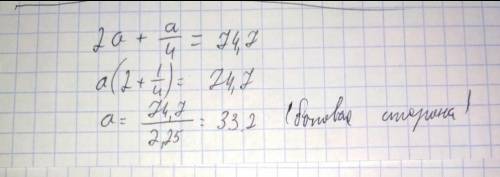 2a + a/4 = 74,7
a(2 + 1/4) = 74,7
a = 74,7/2,25 = 33,2 (боковая сторона)